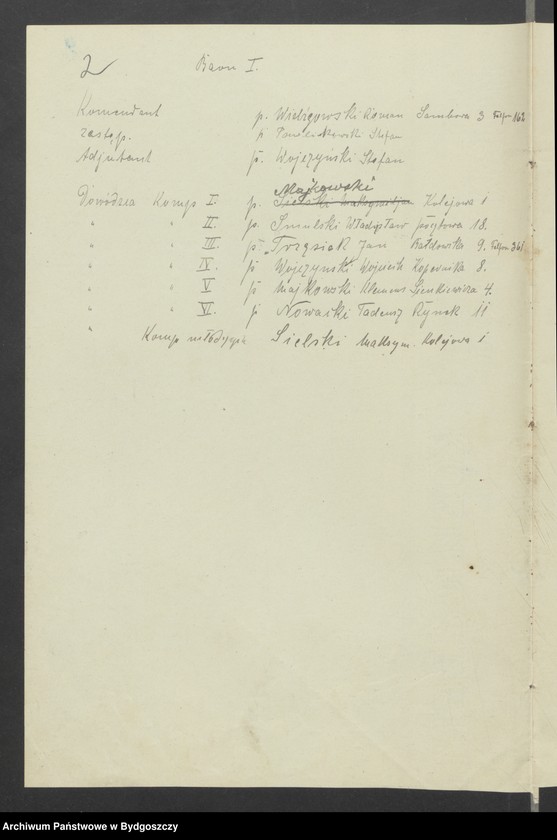 2 Baon I.
Komendant p. Wieligowski Roman Sambora 3 162
zastęp. p. Stefan
Adjutant p. Wojczyński Stefan
Majkowski
Dowódzca Komp I. p. Sielski Maksymiljan Kolejowa 1
" " II. p. Smulski Władysław pocztowa 18.
" " III. p. Trzęsiak Jan 9. 361
" " IV. p. Wojczyński Wojciech Kopernika 8.
" " V p. Majkowski Klemens Sienkiewicza 4.
" " VI. p. Nowacki Tadeusz Rynek 11
" Komp młodzych Sielski Maksym. Kolejowa 1
Archiwum Państwowe w Bydgoszczy